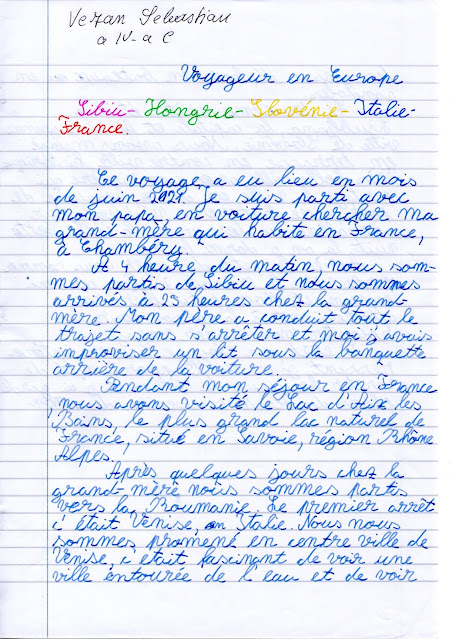 Vezan Sebastian
a IV-a C
Voyageur en Europe
Sibiu - Hongrie - Slovénie - Italie -
France.
Ce voyage a eu lieu en mois
de juin 2021. Je suis parti avec
mon papa en voiture chercher ma
grand-mère qui habite en France,
à Chambéry.
A 4 heure du matin, nous som-
mes partis de Sibiu et nous sommes
arrivés à 23 heures chez la grand-
mère. Mon père a conduit tout le
trajet sans s'arrêter et moi j'avais
improviser un lit sous la banquette
arrière de la voiture.
Pendant mon séjour en France
, nous avons visité le Lac d'Aix les
Bains, le plus grand lac naturel de
France, situé en Savoie, région Rhône
Alpes.
Après quelques jours chez la
grand-mère nous sommes partis
vers la Roumanie. Le premier arrêt
c'était Venise, en Italie. Nous nous
sommes promené en centre ville de
Venise, c'était fascinant de voir une
ville entourée de l'eau et de voir